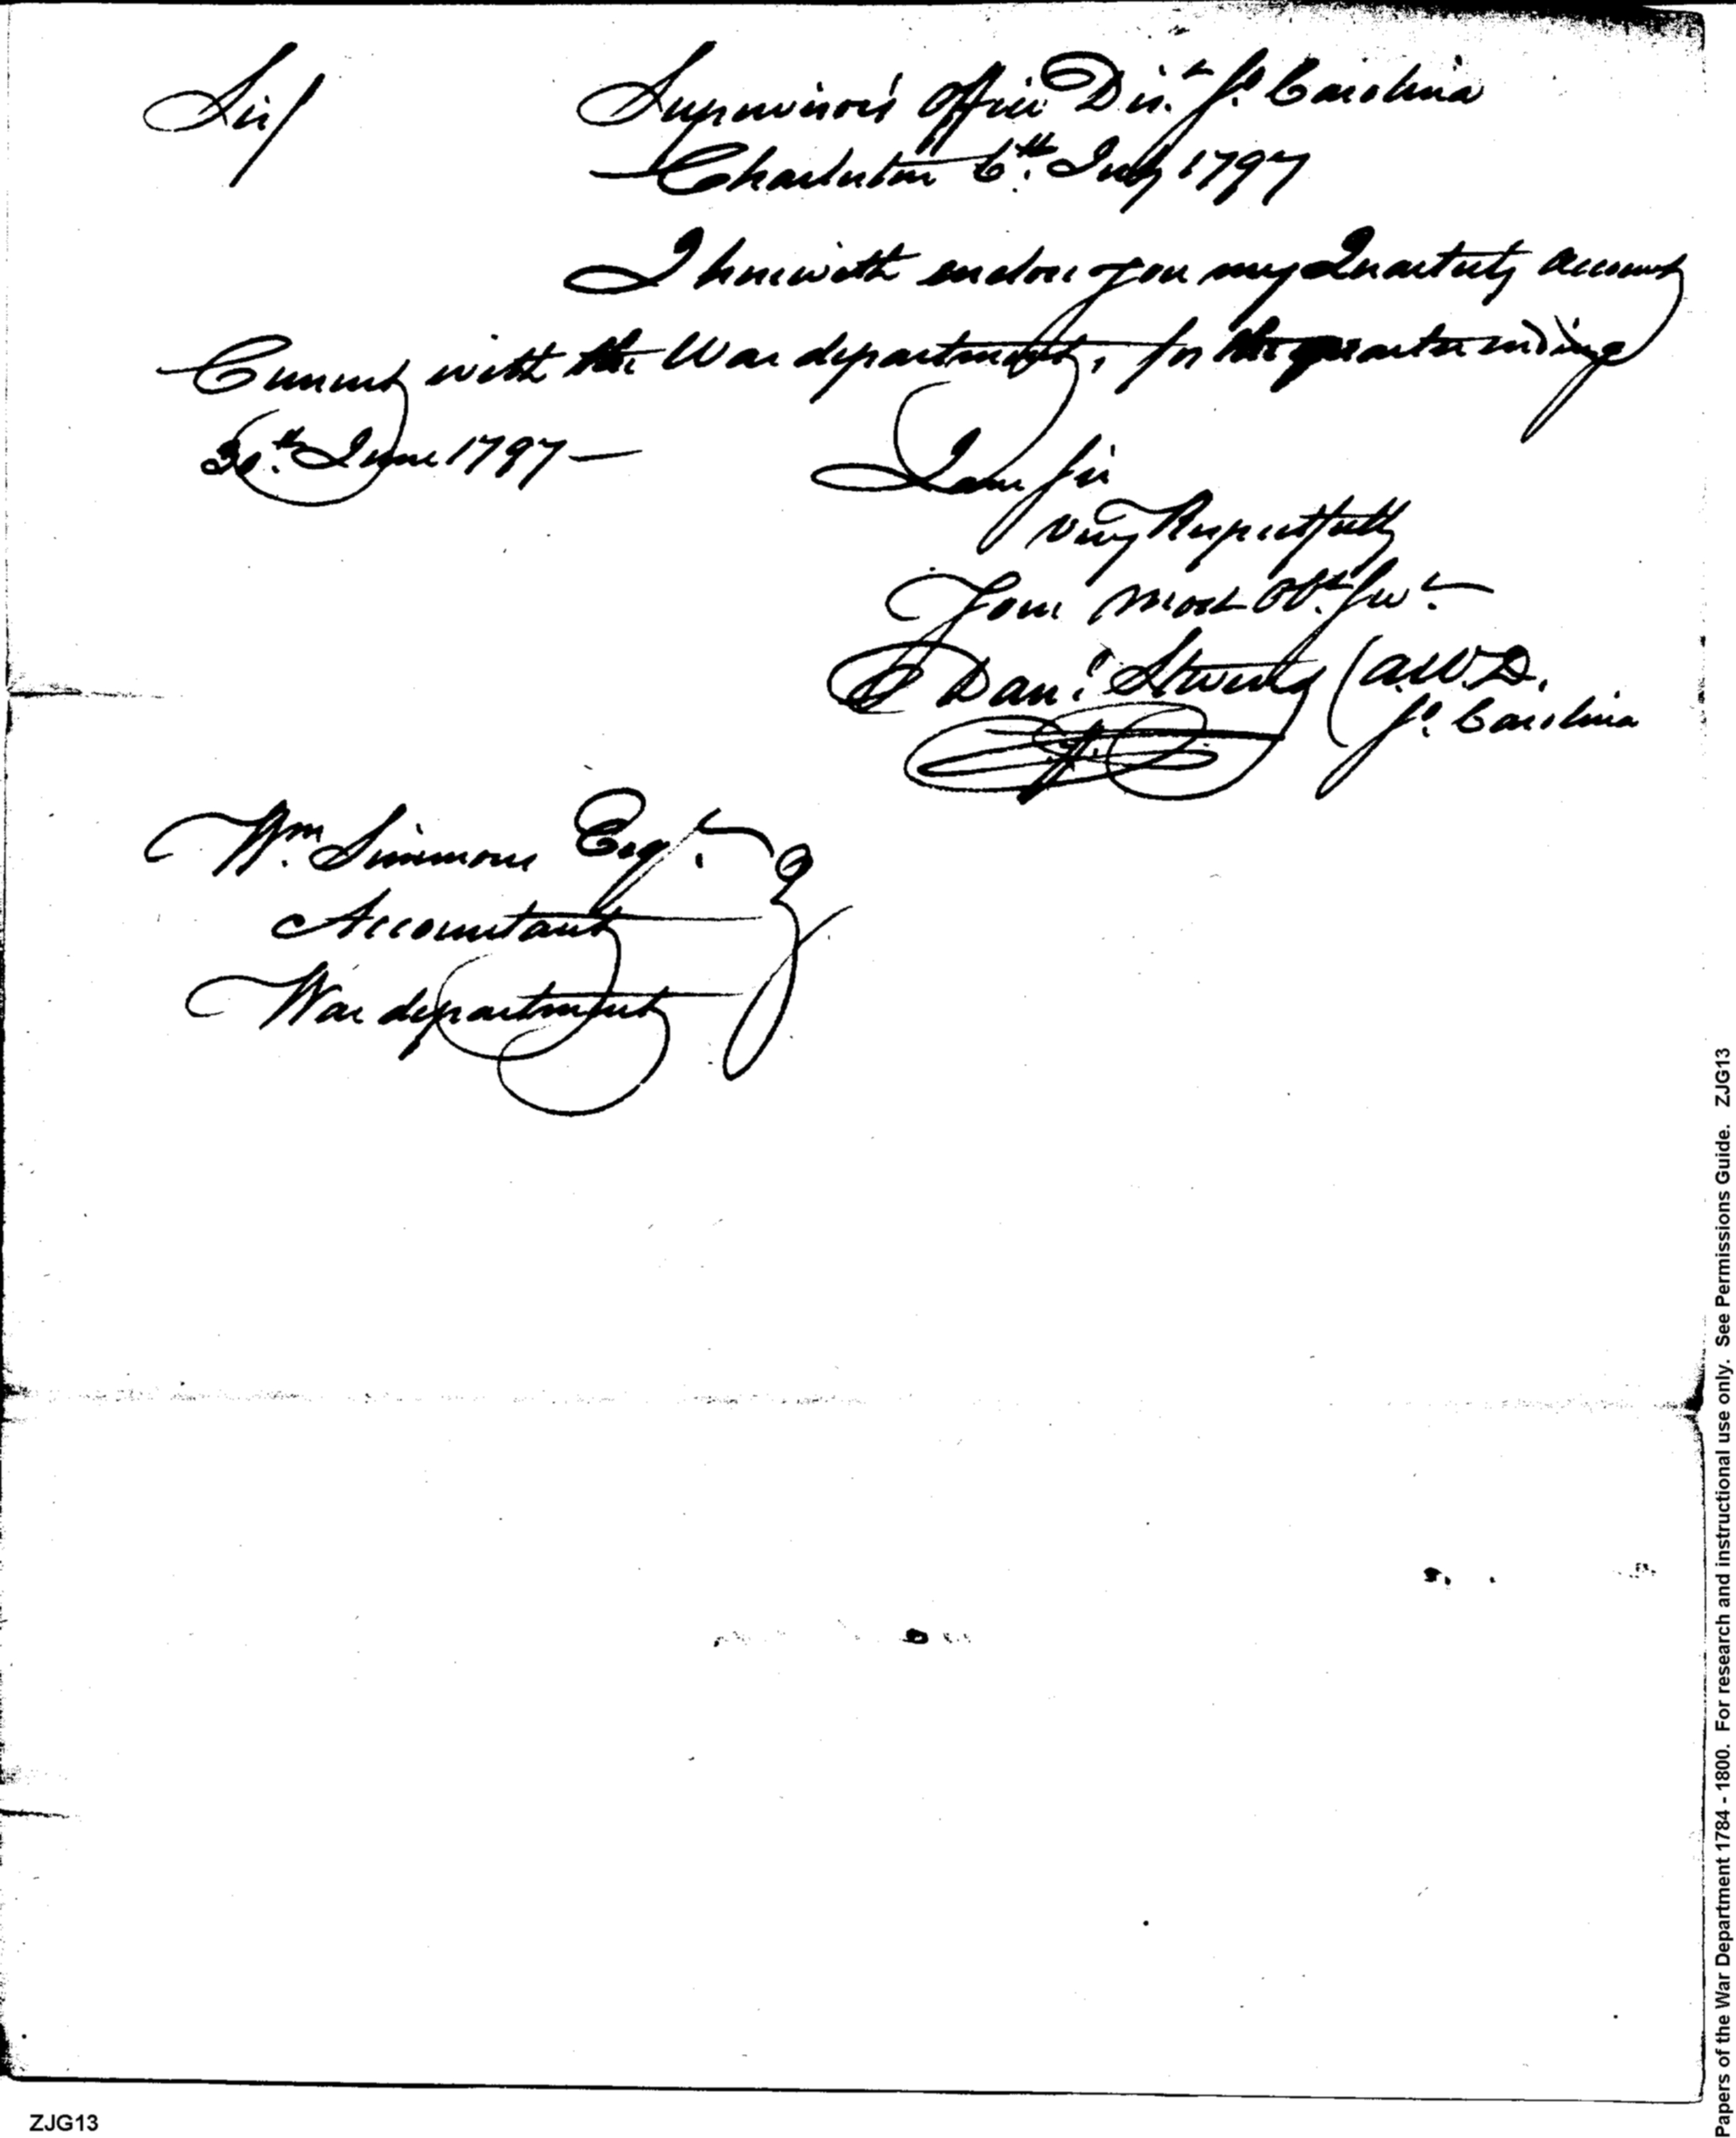 Sir/
Supervisor's Office Dist. So. Carolina
Charleston 6th. July 1797
I herewith enclose you my Quarterly account
Current with the War department, for the quarter ending
30th. June 1797 —
I am Sir
very Respectfully
Your most Obt. Servt.
Danl. Stevens (A.W.D.
So. Carolina
Wm. Simmons Esqr.
Accountant
War department
Papers of the War Department 1784 - 1800. For research and instructional use only. See Permissions Guide. ZJG13
ZJG13